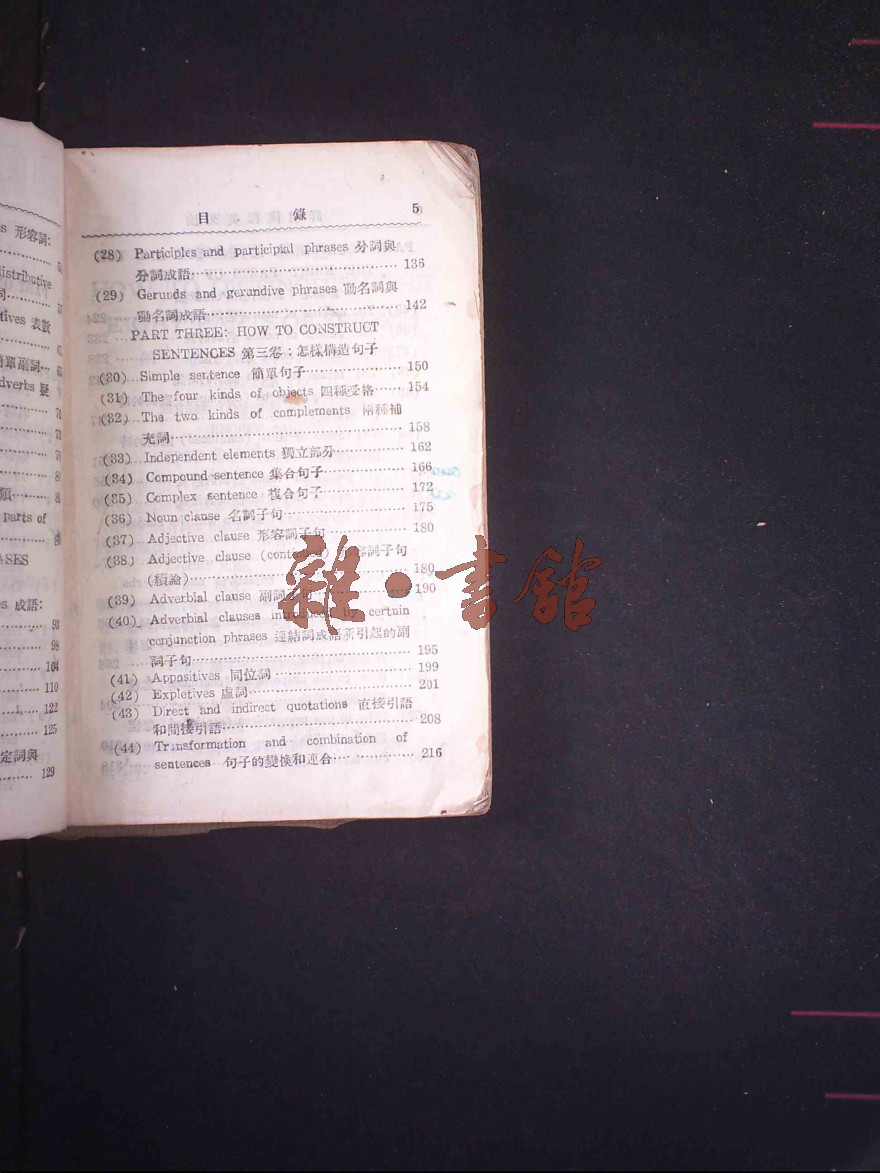 s 形容詞:
distributive
詞
tives 表數
簡單副詞
dverbs 疑
類
parts of
ASES
es 成語:
93
98
104
110
122
125
定詞與
129
目 錄 5
(28) Participles and participial phrases 分詞與
分詞成語 136
(29) Gerunds and gerundive phrases 動名詞與
動名詞成語 142
PART THREE: HOW TO CONSTRUCT
SENTENCES 第三卷:怎樣構造句子
(30) Simple sentence 簡單句子 150
(31) The four kinds of objects 四種受格 154
(32) The two kinds of complements 兩種補
充詞 158
(33) Independent elements 獨立部分 162
(34) Compound sentence 集合句子 166
(35) Complex sentence 複合句子 172
(36) Noun clause 名詞子句 175
(37) Adjective clause 形容詞子句 180
(38) Adjective clause 容詞子句
(續論) 180
(39) Adverbial clause 副詞 190
(40) Adverbial clauses introduced by certain
conjunction phrases 連結詞成語所引起的副
詞子句 195
(41) Appositives 同位詞 199
(42) Expletives 虛詞 201
(43) Direct and indirect quotations 直接引語
和間接引語 208
(44) Transformation and combination of
sentences 句子的變換和連合 216
雜·書館